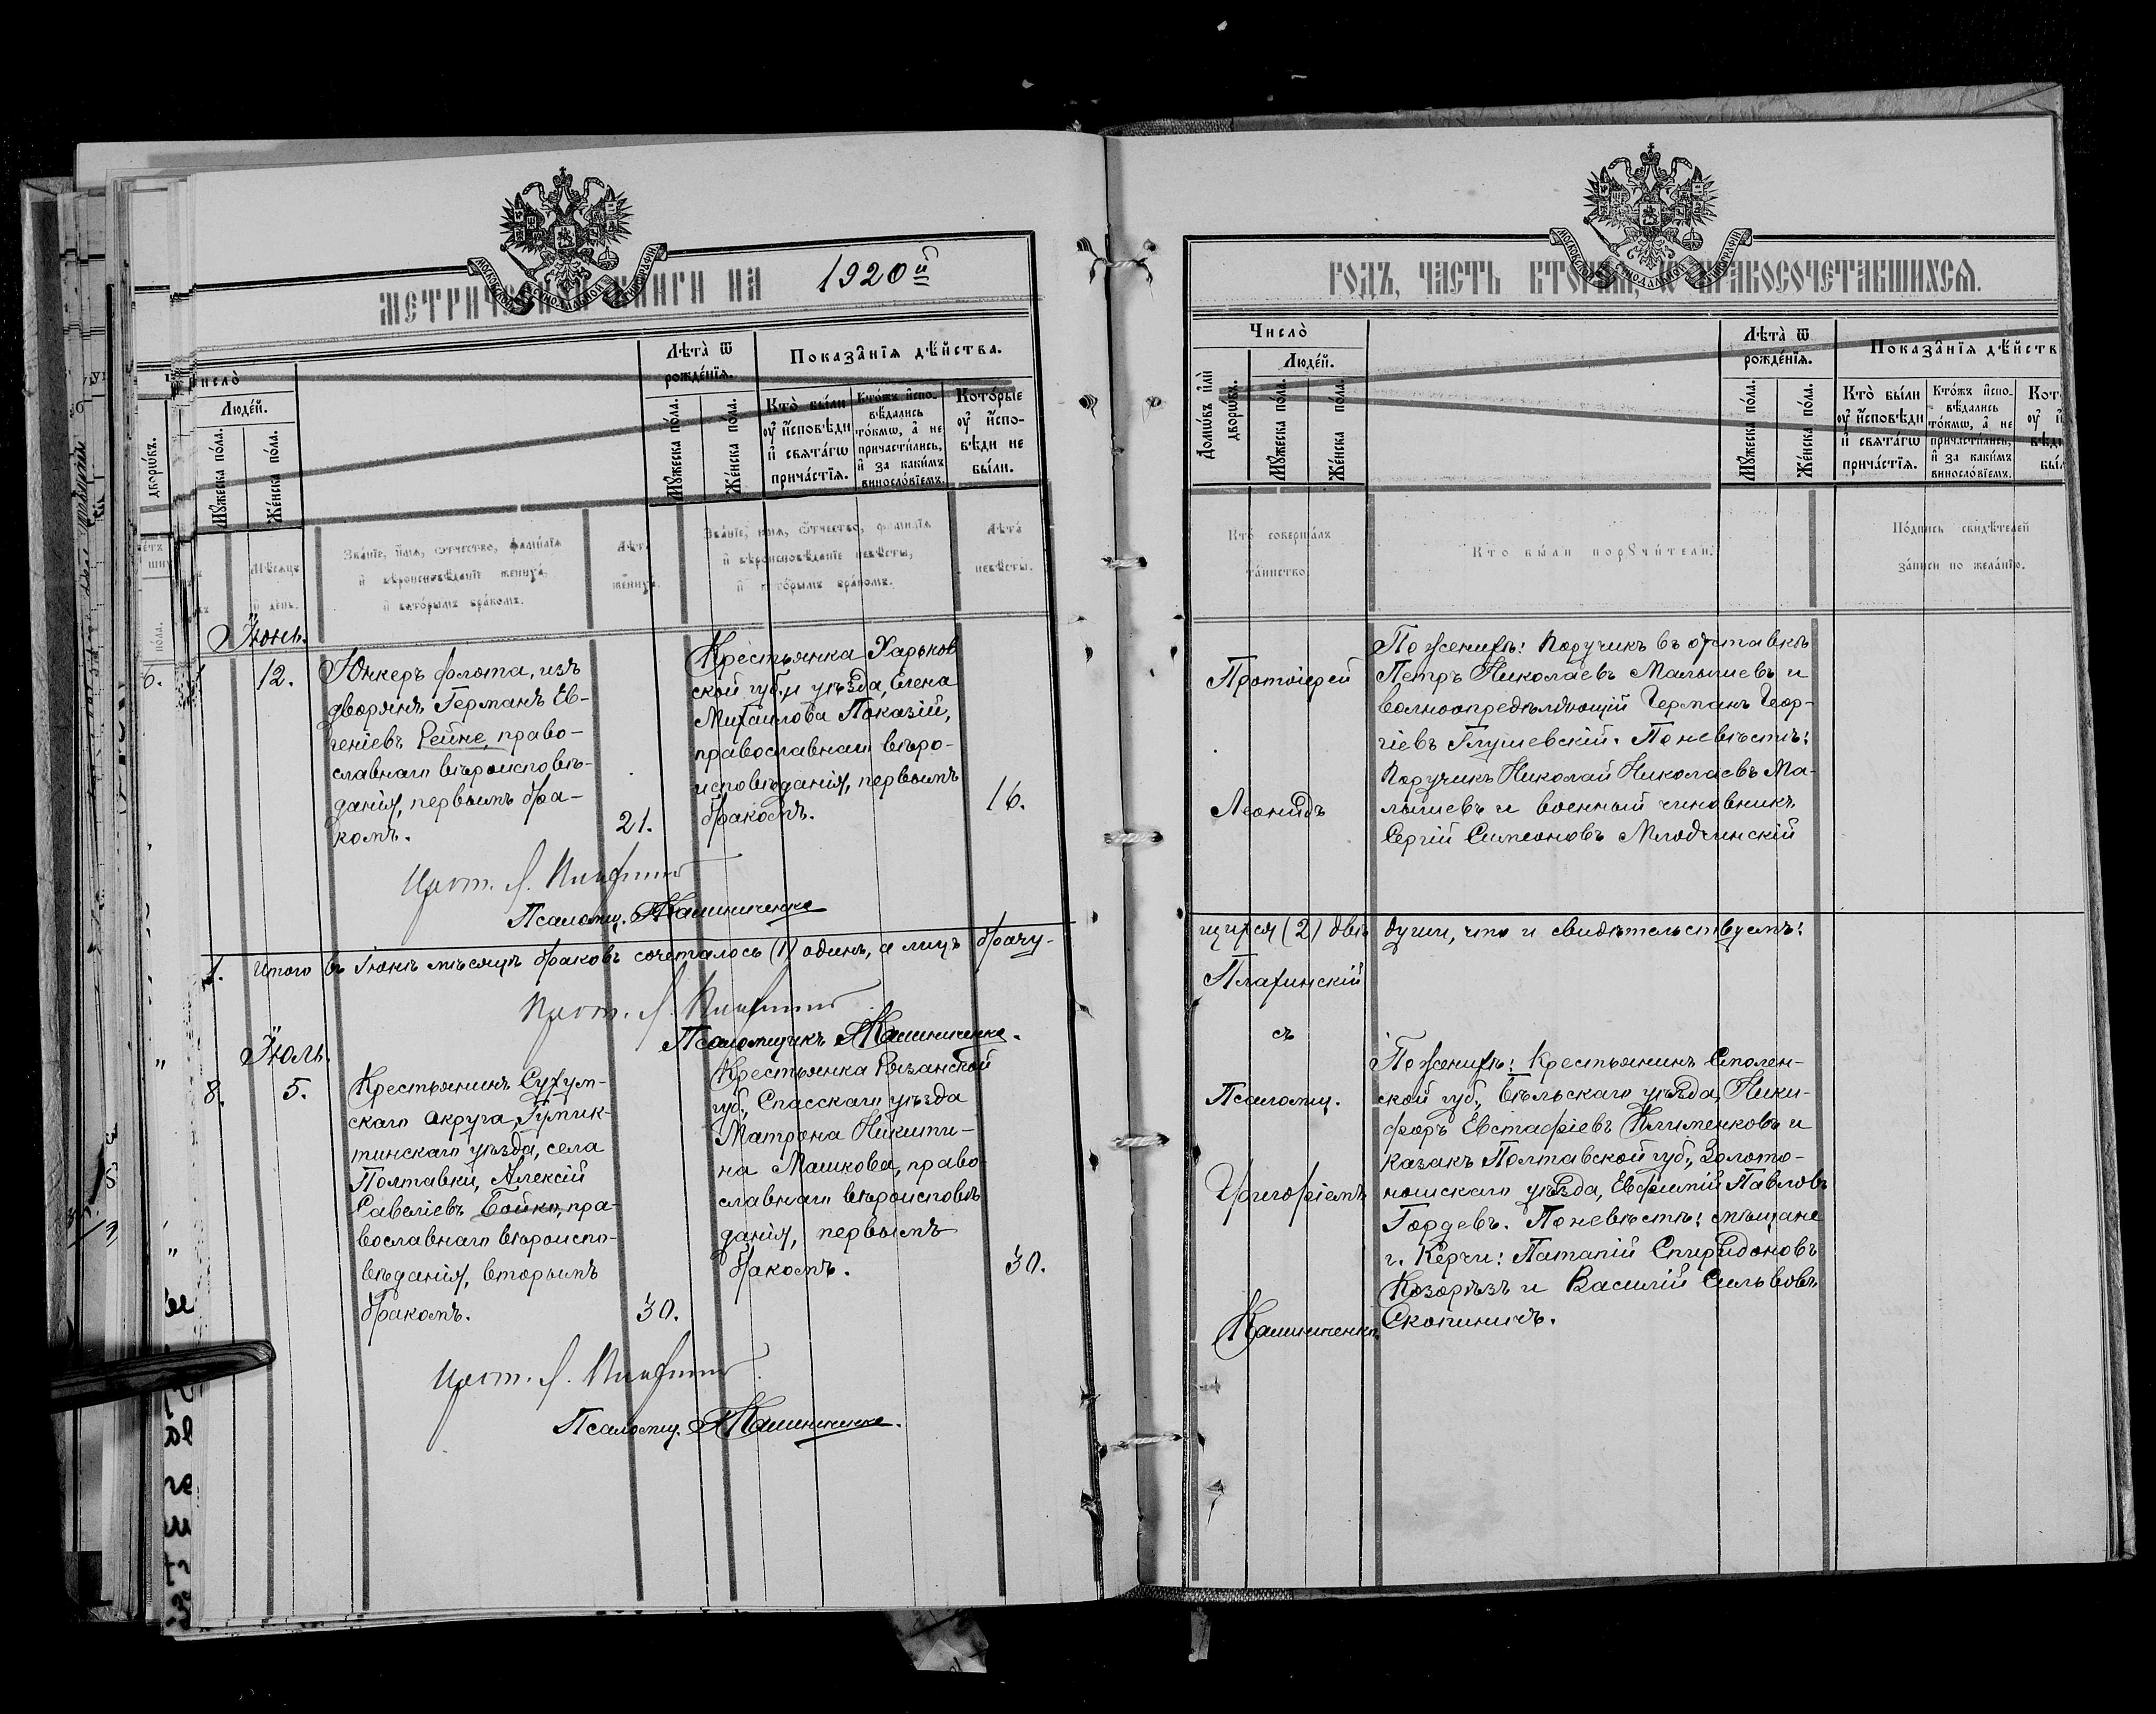 МЕТРИЧЕСКОЙ КНИГИ НА 1920й
Число̀
Люде́й.
Мꙋ́жеска по́ла.
Же́нска по́ла.
Лѣта̀ ѿ
рожде́нїѧ.
Мꙋ́жеска по́ла.
Же́нска по́ла.
Показа̂нїѧ дѣ́йства.
Кто̀ бы́ли
ᲂу҆ и҆́сповѣди
и҆ свѧта́гѡ
прича́стїѧ.
Кто́жъ и҆спо-
вѣ́дались
то́кмѡ, а҆ не
причасти́лись,
и҆ за каки́мъ
винослѡ́вїемъ.
Кото́рые
ᲂу҆ и҆́спо-
вѣди не
бы́ли.
Мѣ́сѧцъ
и҆ де́нь.
Зва́нїе, и҆́мѧ, ѻ҆́тчество, фамѝлїѧ
и҆ вѣроисповѣ́данїе жениха̀,
и҆ кото́рымъ бра́комъ.
Лѣта̀
жениха̀.
Зва́нїе, и҆́мѧ, ѻ҆́тчество, фамѝлїѧ
и҆ вѣроисповѣ́данїе невѣ́сты,
и҆ кото́рымъ бра́комъ.
Лѣта̀
невѣ́сты.
Іюнь.
12.
Юнкеръ флота, изъ
дворянъ Германъ Ев-
геніевъ Рейне, право-
славнаго вѣроисповѣ-
данія, первымъ бра-
комъ.
21.
Крестьянка Харьков
ской губ. и уѣзда, Елена
Михаилова Показій,
православнаго вѣро-
исповѣданія, первымъ
бракомъ.
16.
Прот. Л.
Псаломщ. Калиниченко
1. Итого въ Іюнѣ мѣсяцѣ браковъ сочеталось (1) одинъ, а лицъ брачу-
Прот. Л.
Псаломщикъ Калиниченко.
Іюль.
8. 5.
Крестьянинъ Сухум-
скаго округа, Гумик-
тинскаго уѣзда, села
Полтавки, Алексій
Савеліевъ Бойко, пра-
вославнаго вѣроиспо-
вѣданія, вторымъ
бракомъ.
30.
Крестьянка Рязанской
губ., Спасскаго уѣзда
Матрона Никити-
на Машкова, право
славнаго вѣроисповѣ
данія, первымъ
бракомъ.
30.
Прот. Л.
Псаломщ. Калиниченко.
ГОДЪ, ЧАСТЬ ВТОРАЯ, Ѡ БРАКОСОЧЕТАВШИХСЯ.
Число̀
Домѡ́въ и҆лѝ
дворѡ́въ.
Люде́й.
Мꙋ́жеска по́ла.
Же́нска по́ла.
Лѣта̀ ѿ
рожде́нїѧ.
Мꙋ́жеска по́ла.
Же́нска по́ла.
Показа̂нїѧ дѣ́йств
Кто̀ бы́ли
ᲂу҆ и҆́сповѣди
и҆ свѧта́гѡ
прича́стїѧ.
Кто́жъ и҆спо-
вѣ́дались
то́кмѡ, а҆ не
причасти́лись,
и҆ за каки́мъ
винослѡ́вїемъ.
Кто̀ соверша́лъ
та́инство.
Кто̀ бы́ли порꙋчи́тели.
По́дпись свидѣ́телей
за́писи по жела́нїю.
Протоіерей
Леонидъ
По женихѣ: Поручикъ въ отставкѣ
Петръ Николаевъ Малышевъ и
вольноопредѣляющій Германъ Геор-
гіевъ Глушевскій. По невѣстѣ:
Поручикъ Николай Николаевъ Ма-
лышевъ и военный чиновникъ
Сергій Симеоновъ Млодчинскій
щихся (2) двѣ души, что и свидѣтельствуемъ:
Плахинскій
съ
Псаломщ.
Григоріемъ
Калиниченко
По женихѣ: Крестьянинъ Смолен-
ской губ., Бѣльскаго уѣзда, Ники-
форъ Евстафіевъ Клименковъ и
казакъ Полтавской губ., Золото-
ношскаго уѣзда, Евфимій Павловъ
Гордевъ. По невѣстѣ: мѣщане
г. Керчи: Патапій Спиридоновъ
Козорѣзъ и Василій Сильвовъ
Скопиничъ.